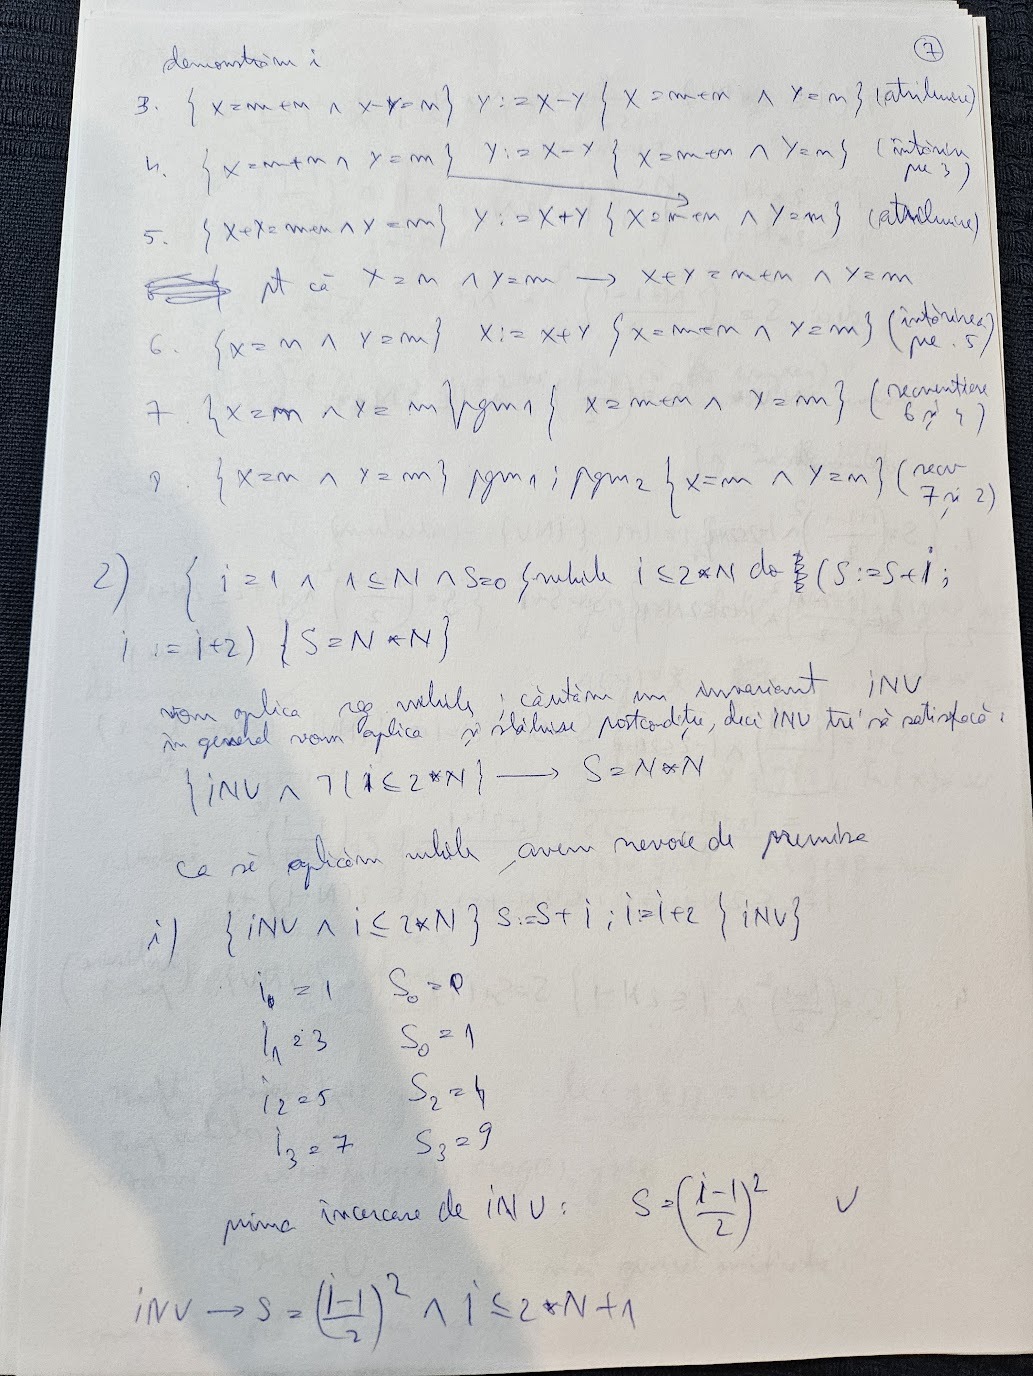 7
demonstrăm i
3. { X=m+n ∧ X-Y=n } Y:=X-Y { X=m+n ∧ Y=n } (atribuire)
4. { X=m+n ∧ Y=m } Y:=X-Y { X=m+n ∧ Y=n } (întărirea pre 3)
5. { X+Y=m+n ∧ Y=m } Y:=X+Y { X=m+n ∧ Y=m } (atribuire)
pt că X=n ∧ Y=m → X+Y=m+n ∧ Y=m
6. { X=n ∧ Y=m } X:=X+Y { X=m+n ∧ Y=m } (întărirea pre. 5)
7. { X=n ∧ Y=m } pgm1 { X=m+n ∧ Y=m } (secvențiere 6 și 4)
8. { X=n ∧ Y=m } pgm1 ; pgm2 { X=m ∧ Y=n } (secv 7 și 2)
2) { i=1 ∧ 1≤N ∧ S=0 } while i≤2*N do (S:=S+i;
i:=i+2) { S=N*N }
vom aplica reg while ; căutăm un invariant INV
în general vom aplica și slăbirea postcondiție, deci INV tre să satisfacă:
{ INV ∧ ¬( i≤2*N } → S=N*N
ca să aplicăm while, avem nevoie de premisa
i) { INV ∧ i≤2*N } S:=S+i ; i:=i+2 { INV }
i₀=1 S₀=0
i₁=3 S₀=1
i₂=5 S₂=4
i₃=7 S₃=9
prima încercare de INV: S=((i-1)/2)² ∨
INV → S=((i-1)/2)² ∧ i≤2*N+1